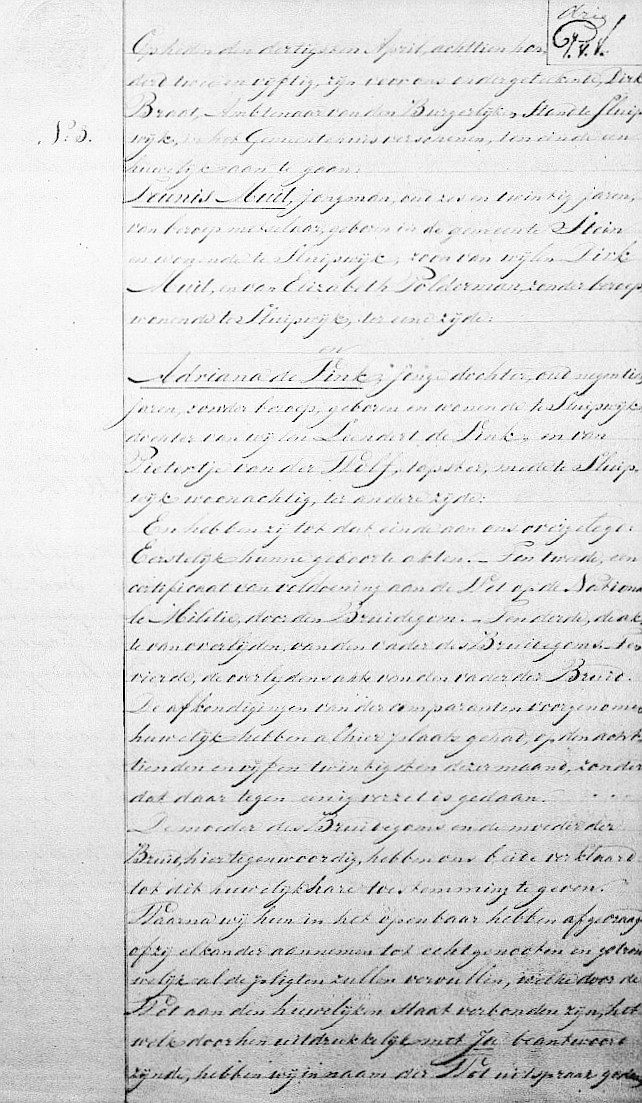 drie
N.º 3.
Op heden den dertigsten April, achttien hon¸
derd twee en vijftig, zijn voor ons ondergeteekende, Dirk
Braat, Ambtenaar van den Burgerlijken Stand te Sluip¸
wijk, in het Gemeentehuis verschenen, ten einde een
huwelijk aan te gaan:
Teunis Muit, jongman, oud zes en twintig jaren,
van beroep metselaar, geboren in de gemeente Stein
en wonende te Sluipwijk, zoon van wijlen Dirk
Muit, en van Elizabeth Polderman, zonder beroep
wonende te Sluipwijk, ter eene zijde:
en
Adriana de Pink, jonge dochter, oud negentien
jaren, zonder beroep, geboren en wonende te Sluipwijk
dochter van wijlen Leendert de Pink, en van
Pietertje van der Wolf, tapster, mede te Sluip¸
wijk woonachtig, ter andere zijde:
En hebben zij tot dat einde aan ons overgelegd:
Eerstelijk hunne geboorte akten. – Ten tweede, een
certificaat van voldoening aan de Wet op de Nationa
le Militie, door den Bruidegom. – Ten derde, de ak¸
te van overlijden, van den vader des Bruidegoms. Ten
vierde, de overlijdensakte van den vader der Bruid.
De afkondigingen van der comparanten voorgenomen
huwelijk hebben alhier plaats gehad, op den acht
tienden en vijf en twintigsten dezer maand, zonder
dat daar tegen eenig verzet is gedaan.
De moeder des Bruidegoms en de moeder der
Bruid, hier tegenwoordig, hebben ons beide verklaard
tot dit huwelijk hare toestemming te geven.
Waarna wij hun in het openbaar hebben afgevraagd
of zij elkander aannemen tot echtgenooten en getrou
welijk al de pligten zullen vervullen, welke door de
Wet aan den huwelijken staat verbonden zijn, het
welk door hen uitdrukkelijk met Ja beantwoord
zijnde, hebben wij in naam der Wet uitspraak gedaan